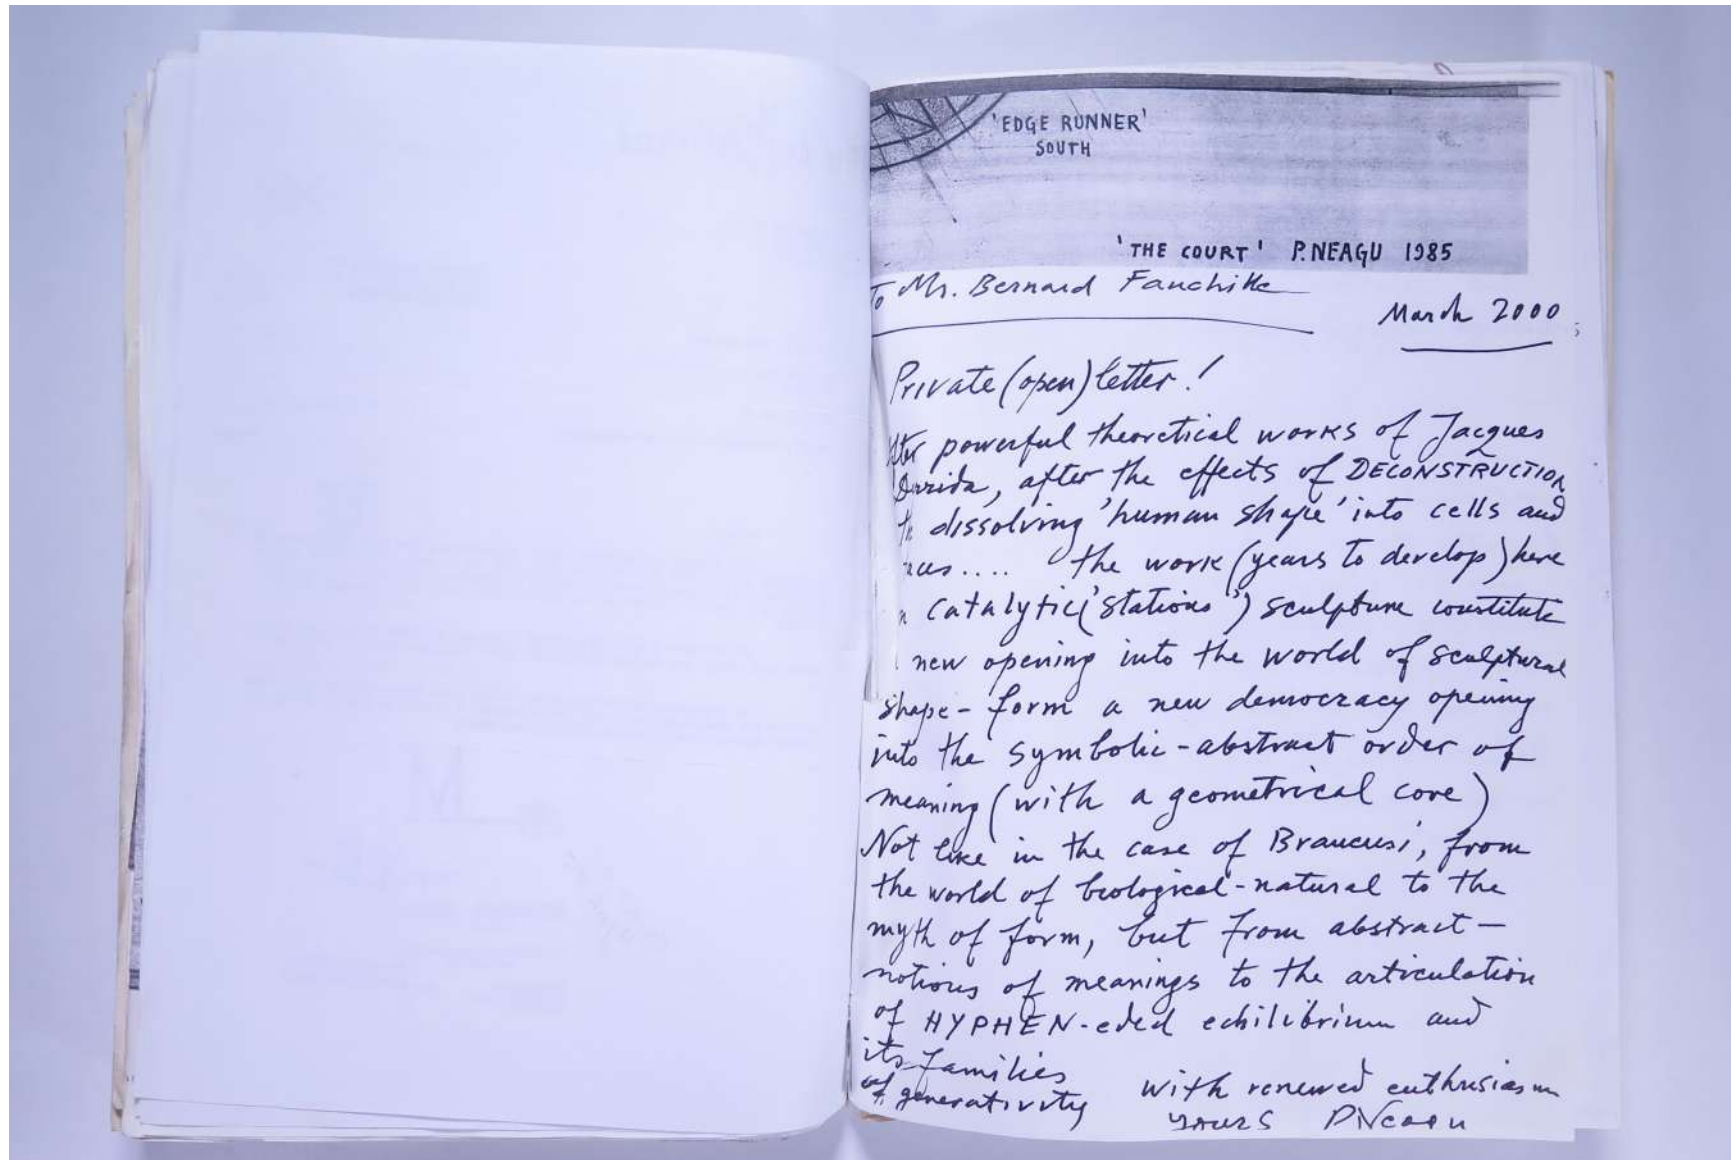 'EDGE RUNNER'
SOUTH
'THE COURT' P.NEAGU 1985
To Mr. Bernard
March 2000
Private (open) letter!
powerful theoretical works of Jacques
Derrida, after the effects of DECONSTRUCTION
dissolving 'human shape' into cells and
.... the work (years to develop) here
catalytic ('stations') sculpture constitute
new opening into the world of sculptural
shape - form a new democracy opening
into the symbolic - abstract order of
meaning (with a geometrical core)
Not like in the case of Brancusi, from
the world of biological - natural to the
myth of form, but from abstract -
notions of meanings to the articulation
of HYPHEN-eded echilibrium and
its families
of generativity
with renewed enthusiasm
yours PNeagu